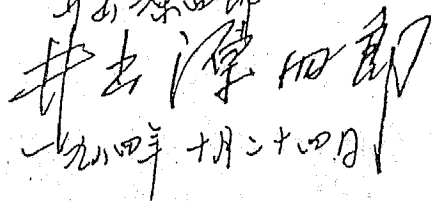 井出源四郎
一九八四年 十月二十四日